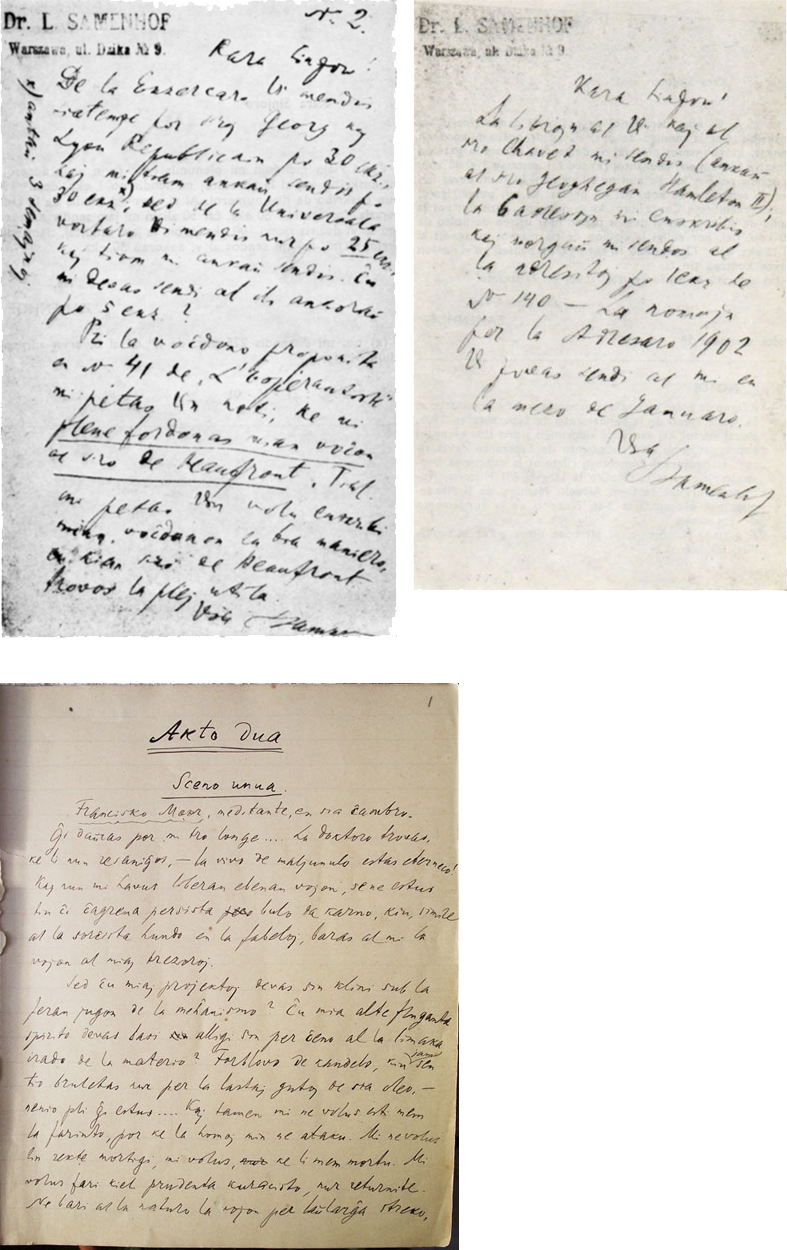 Dr. L. SAMENHOF
Warszawa, ul. Dzika № 9.
№ 2.
Kara
De la Esearcaro li mendis
por kaj
Lyon Republicain po 30
kaj mi ankaŭ sendis po
30 sed de la Universala
vortaro li mendis nur po 25
kaj tiom mi ankaŭ sendis. Ĉu
mi devas sendi al ili ankoraŭ
po 5 ?
Pri la voĉdono proponita
en № 41 de „L'Esperantiste"
mi petas vin noti, ke mi
plene fordonas mian voĉon
al sro de Beaufront. Tial
mi petas vin volu enskribi
mian voĉdonon en tia maniero,
en kian sro de Beaufront
trovos la plej utila.
Via
Dr. L. SAMENHOF
Warszawa, ul. Dzika № 9.
Kara
al Vi kaj al
sro Chavet mi sendis (ankaŭ
al sro Geoghegan Hamleton II);
la mi enskribis
kaj morgaŭ mi sendos al
la adresitoj po de
№ 140 — La nomojn
por la Adresaro 1902
Vi povas sendi al mi en
la mezo de Januaro.
Via
Akto dua
1
Sceno unua.
Francisko Moor, meditante, en sia ĉambro.
Ĝi daŭras por mi tro longe.... La doktoro trovas,
ke li nun resaniĝos, — la vivo de maljunulo estas eterneco!
Kaj nun mi havus liberan ebenan vojon, se ne estus
tiu ĉi ĉagrena persista bulo da karno, kiu, simile
al la sorĉista hundo en la fabeloj, baras al mi la
vojon al miaj trezoroj.
Sed ĉu miaj projektoj devas sin klini sub la
feran jugon de la meĥanismo? Ĉu mia alte fluganta
spirito devas lasi alligi sin per ĉeno al la limaka
irado de la materio? Forblovo de kandelo, kiu jam sen
tio bruletas nur per la lastaj gutoj de sia oleo, —
nenio pli ĝi estus.... Kaj tamen mi ne volus esti mem
la farinto, por ke la homoj min ne ataku. Mi ne volus
lin rekte mortigi, mi volus, ke li mem mortu. Mi
volus fari kiel prudenta kuracisto, nur returnite.
Ne bari al la naturo la vojon per laŭlarĝa streko,